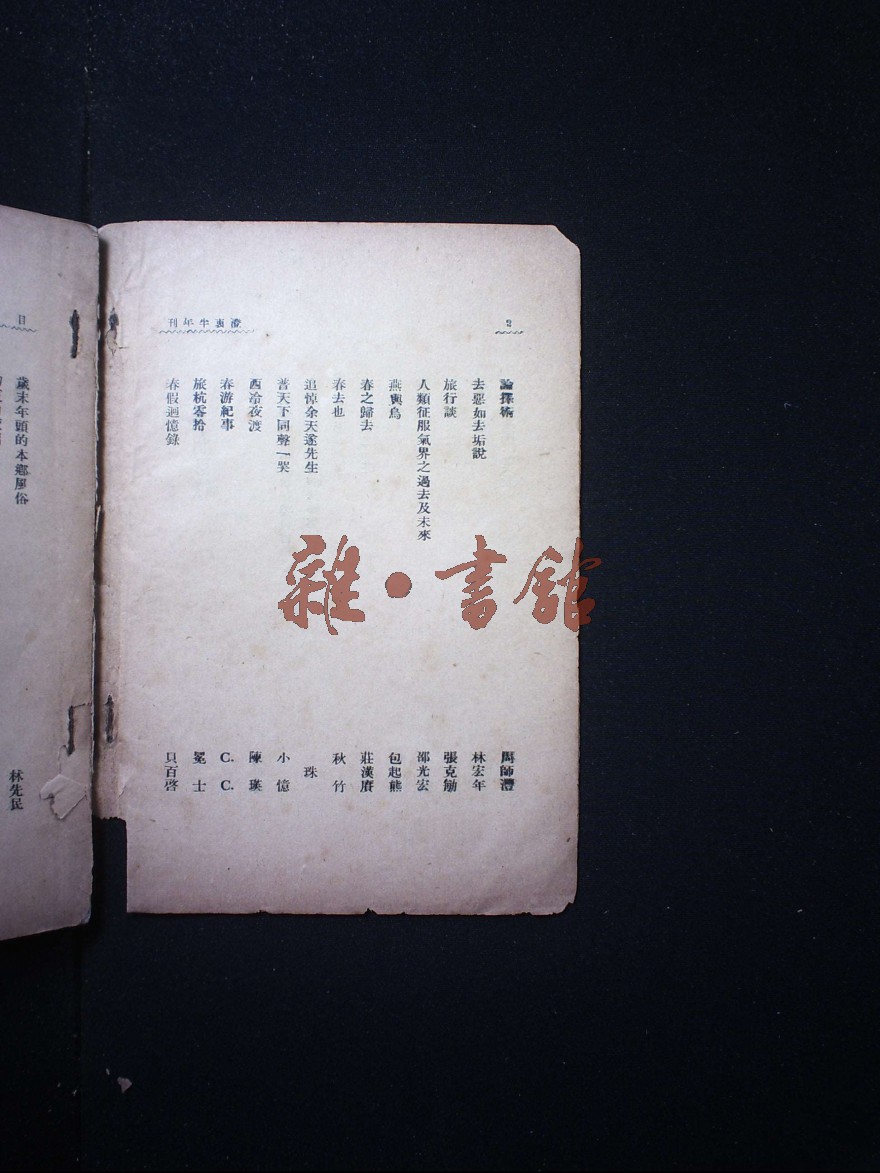 2
澄衷半年刊
論擇術 周師灃
去惡如去垢說 林宏年
旅行談 張克勋
人類征服氣界之過去及未來 邵光宏
燕與烏 包起熊
春之歸去 莊漢賡
春去也 秋竹
追悼余天遂先生 珠
普天下同聲一哭 小憶
西冷夜渡 陳瑛
春游紀事 C. C.
旅杭零拾 冕士
春假迴憶錄 貝百啓
目
歲末年頭的本鄉風俗 林先民
雜·書館